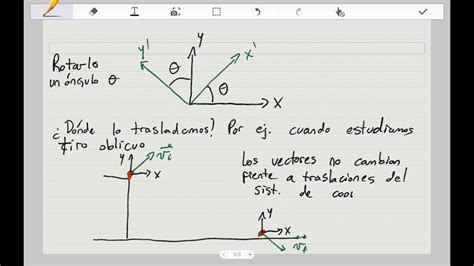 Rotarlo
un ángulo θ
y'
y
x'
θ
θ
x
¿Dónde lo trasladamos? Por ej. cuando estudiamos
tiro oblicuo
y
v_i
x
Los vectores no cambian
frente a traslaciones del
sist. de coor
y
x
v_f
3/3